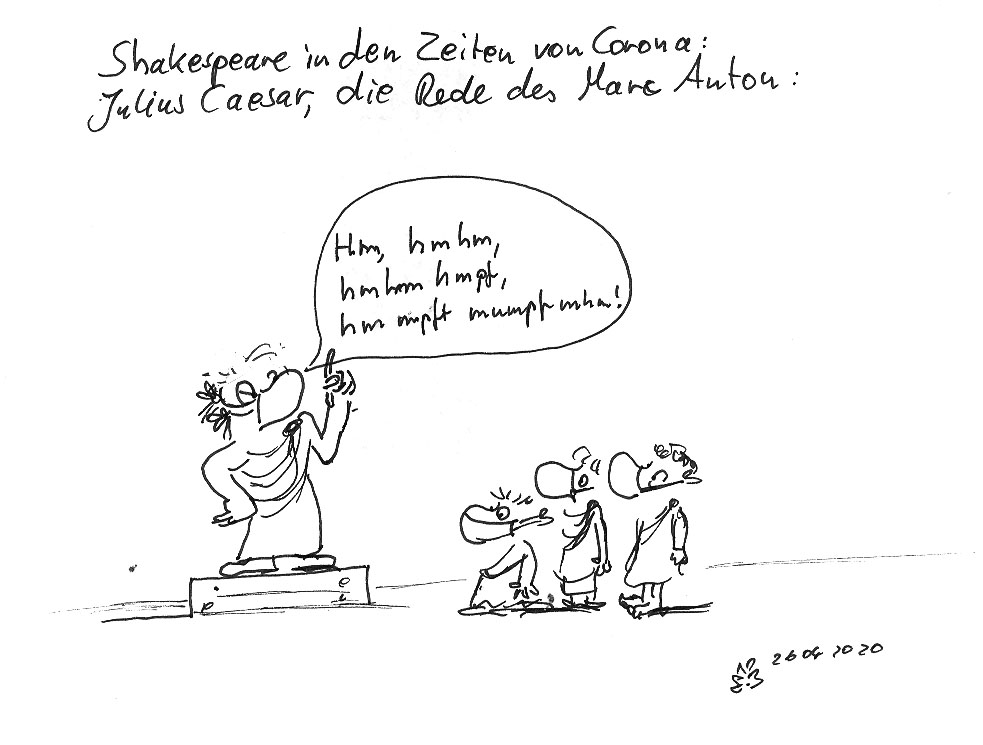 Shakespeare in den Zeiten von Corona:
Julius Caesar, die Rede des Marc Anton:
Hm, hmhm,
hmhm hmpf,
hm mpft mumpf mhm!
26 04 2020